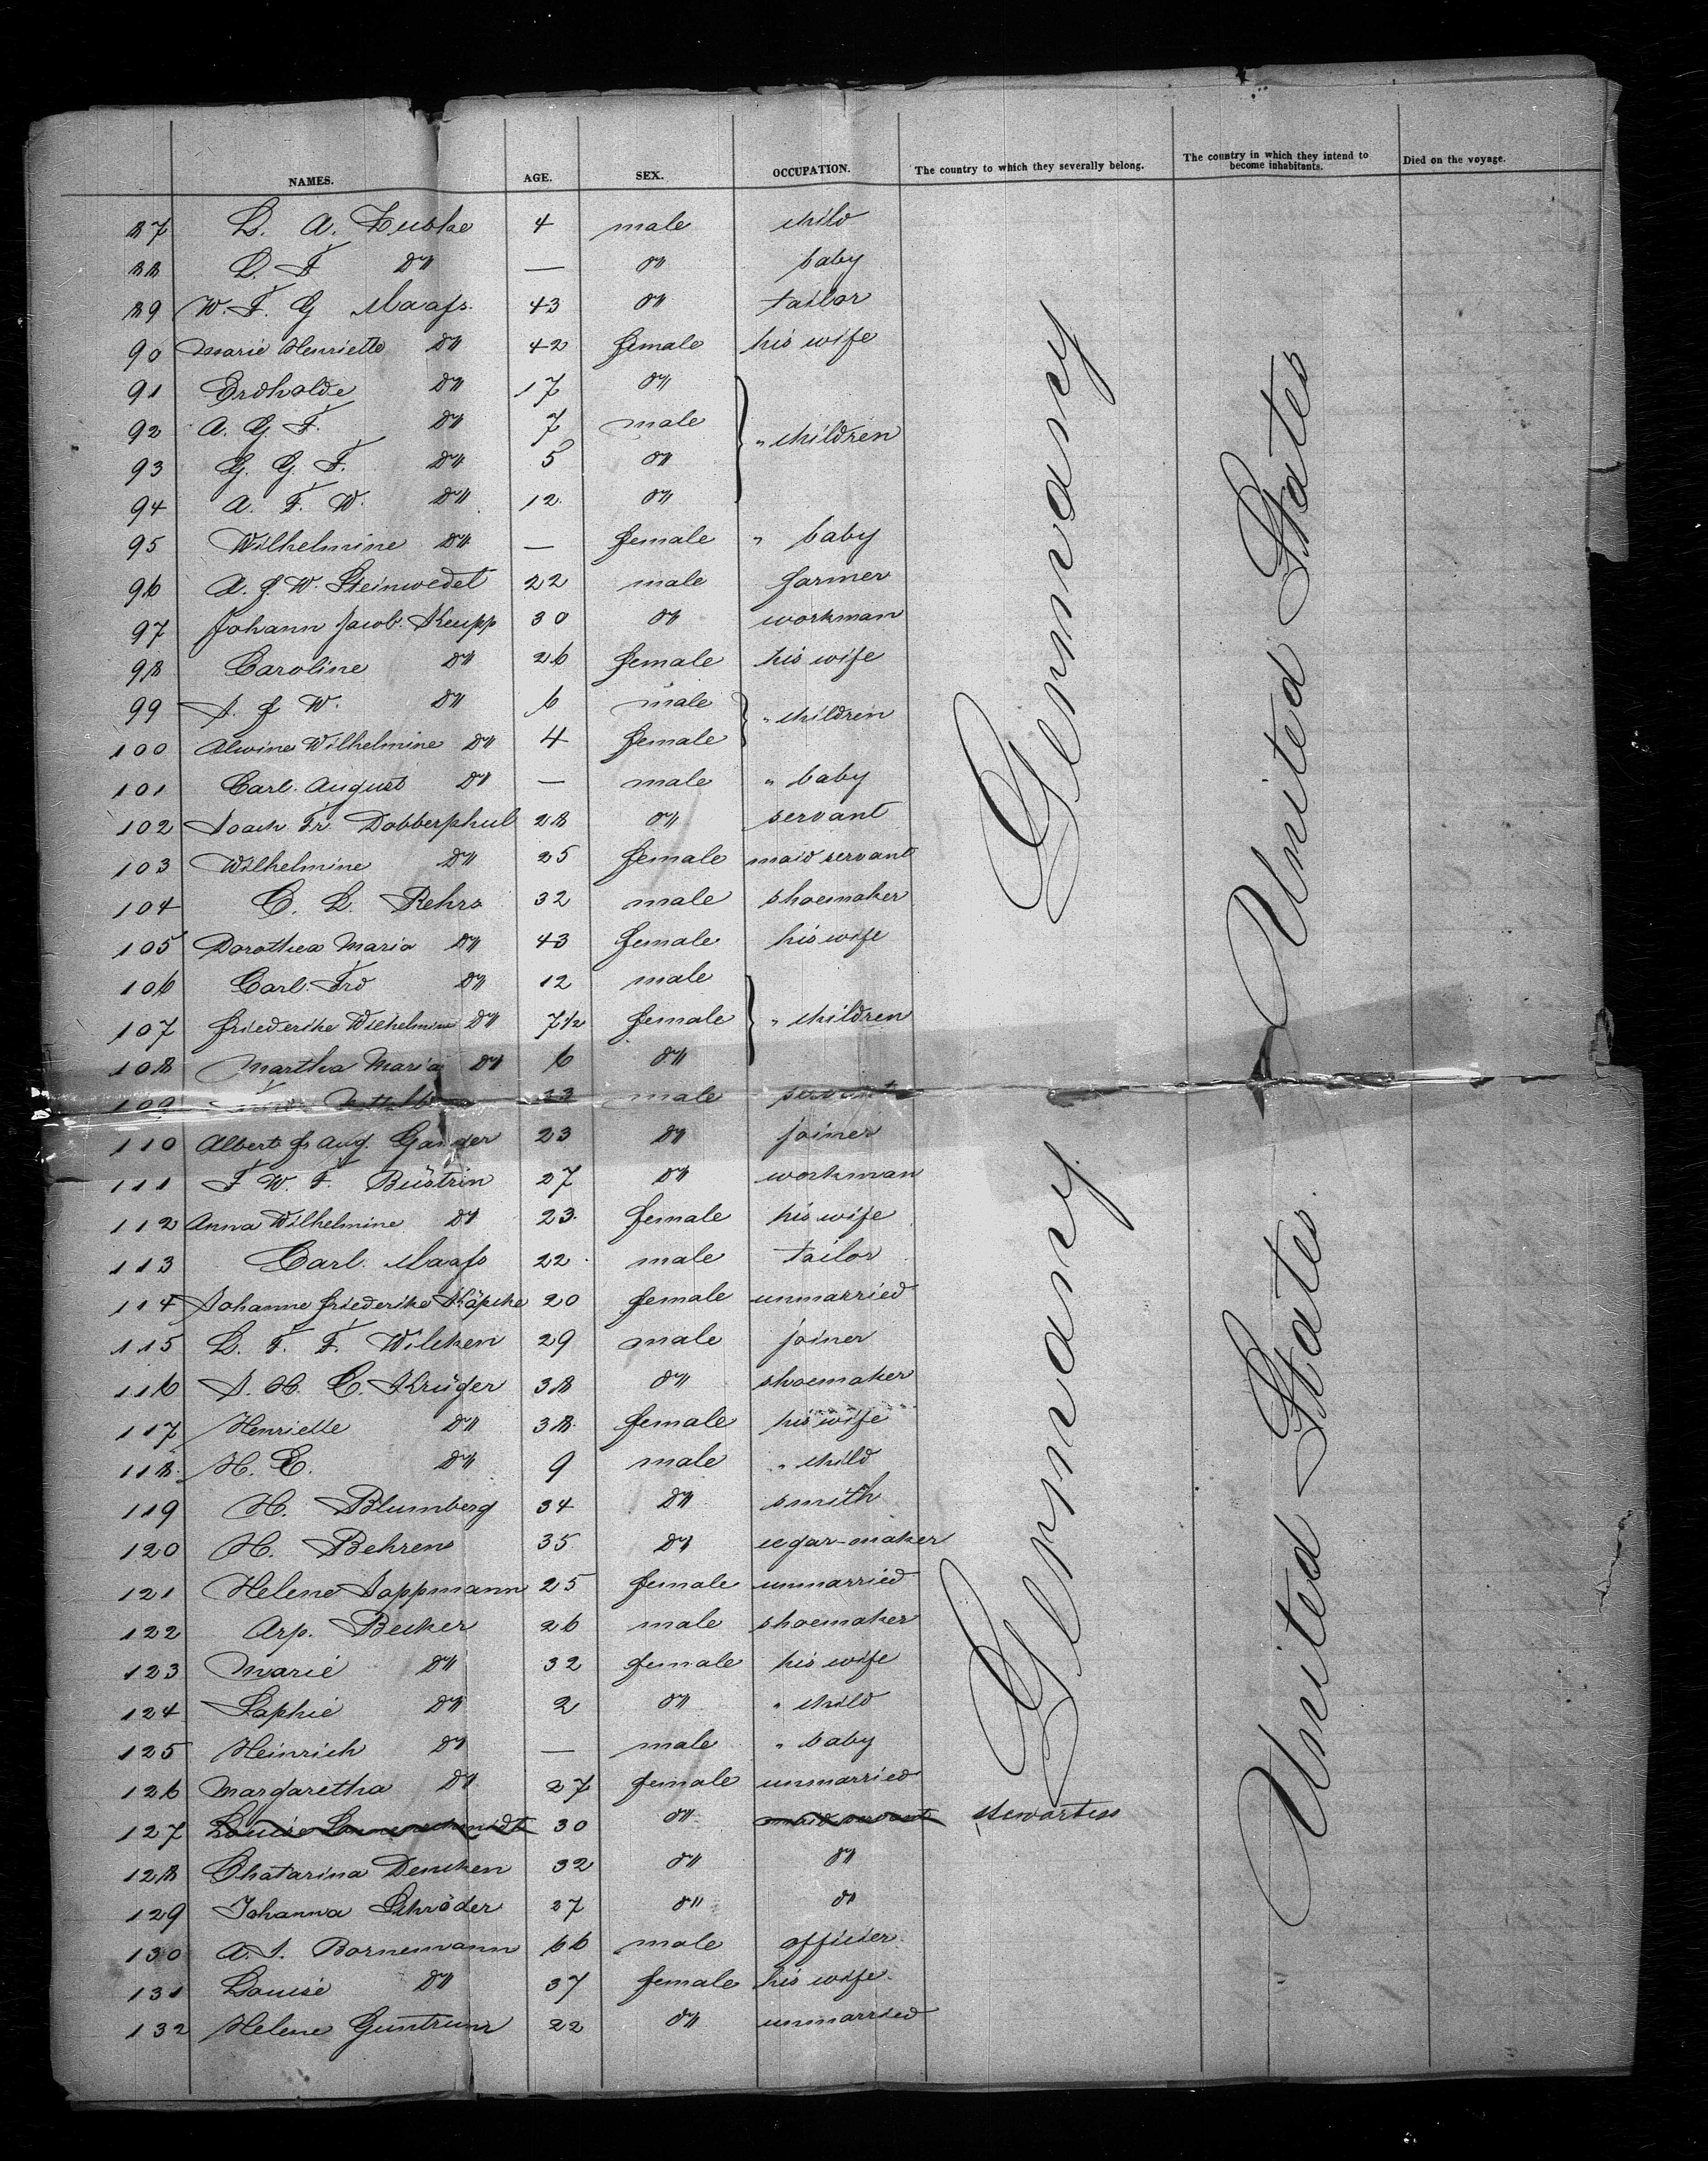 NAMES. AGE. SEX. OCCUPATION. The country to which they severally belong. The country in which they intend to become inhabitants. Died on the voyage.
87 L. A. 4 male child
88 L. F. Do — Do baby
89 W. F. G Maass. 43 Do tailor
90 Marie Henriette Do 42 female his wife
91 Erdholde Do 17 Do
92 A. G. F. Do 7 male " children
93 G. G. F. Do 5 Do
94 A. F. W. Do 12 Do
95 Wilhelmine Do — female " baby
96 A. J. W. Steinwedel 22 male farmer
97 Johann Jacob Keupp 30 Do workman
98 Caroline Do 26 female his wife
99 J. J W. Do 6 male " children
100 Alwine Wilhelmine Do 4 female
101 Carl August Do — male " baby
102 Joach Fr Dobberphul 28 Do servant
103 Wilhelmine Do 25 female maid servant
104 C. L. Rehrs 32 male shoemaker
105 Dorothea Maria Do 43 female his wife
106 Carl Frd Do 12 male
107 Friederike Wilhelmine Do 7 1/2 female " children
108 Martha Maria Do 6 Do
109 23 male servant
110 Albert Fr Aug. Ganger 23 Do joiner
111 F W. F. Büstrin 27 Do workman
112 Anna Wilhelmine Do 23 female his wife
113 Carl Maass 22 male tailor
114 Johanne Friederike Köpcke 20 female unmarried
115 L. F. F. Wilcken 29 male joiner
116 J. H. C. Krüger 38 Do shoemaker
117 Henriette Do 38 female his wife
118 H. E. Do 9 male " child
119 H. Blumberg 34 Do smith
120 H. Behrens 35 Do cegar-maker
121 Helene Jappmann 25 female unmarried
122 Arp. Becker 26 male shoemaker
123 Marie Do 32 female his wife
124 Sophie Do 2 Do " child
125 Heinrich Do — male " baby
126 Margaretha Do 27 female unmarried
127 Louise 30 Do maid servant stewartess
128 Chatarina Dencken 32 Do Do
129 Johanna Schröder 27 Do Do
130 A. J. Bornemann 66 male officier
131 Louise Do 37 female his wife
132 Helene Guntrum 22 Do unmarried
Germany
United States
Germany
United States